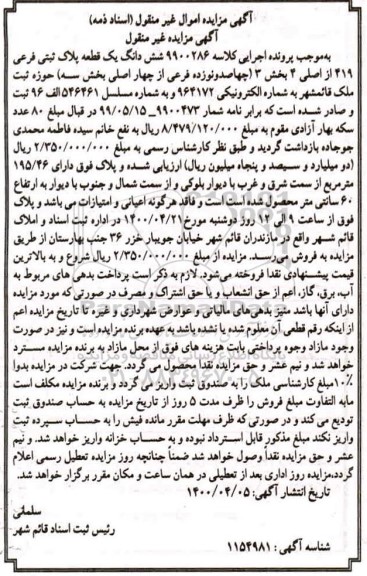 آگهی مزایده اموال غیر منقول (اسناد ذمه)
آگهی مزایده غیر منقول
به‌موجب پرونده اجرایی کلاسه ۹۹۰۰۲۸۶ شش دانگ یک قطعه پلاک ثبتی فرعی
۴۱۹ از اصلی ۴ بخش ۳ (چهاصدونوزده فرعی از چهار اصلی بخش سه) حوزه ثبت
ملک قائمشهر به شماره الکترونیکی ۹۶۴۱۷۲ و به شماره مسلسل ۵۴۶۴۶۱ الف ۹۶ ثبت
و صادر شده است که برابر نامه شمار ۹۹۰۰۴۷۳_۹۹/۰۵/۱۵ در قبال مبلغ ۸۰ عدد
سکه بهار آزادی مقوم به مبلغ ۸/۴۷۹/۱۲۰/۰۰۰ ریال به نفع خانم سیده فاطمه محمدی
جوجاده بازداشت گردید و طبق نظر کارشناس رسمی به مبلغ ۲/۳۵۰/۰۰۰/۰۰۰ ریال
(دو میلیارد و سیصد و پنجاه میلیون ریال) ارزیابی شده و پلاک فوق دارای ۱۹۵/۴۶
مترمربع از سمت شرق و غرب با دیوار بلوکی و از سمت شمال و جنوب با دیوار به ارتفاع
۶۰ سانتی متر محصول شده است است و فاقد هرگونه اعیانی و امتیازات می باشد و پلاک
فوق از ساعت ۹ الی ۱۲ روز دوشنبه مورخ ۱۴۰۰/۰۴/۲۱ در اداره ثبت اسناد و املاک
قائم شهر واقع در مازندران قائم شهر خیابان جویبار خزر ۳۶ جنب بهارستان از طریق
مزایده به فروش می‌رسد. مزایده از مبلغ ۲/۳۵۰/۰۰۰/۰۰۰ ریال شروع و به بالاترین
قیمت پیشنهادی نقدا فروخته می‌شود. لازم به ذکر است پرداخت بدهی های مربوط به
آب، برق، گاز، اعم از حق انشعاب و یا حق اشتراک و مصرف در صورتی که مورد مزایده
دارای آنها باشد منیز بدهی‌های مالیاتی و عوارض شهرداری و غیره تا تاریخ مزایده اعم
از اینکه رقم قطعی آن معلوم شده یا نشده باشد به عهده برنده مزایده است و نیز در صورت
وجود مازاد وجوه پرداختی بابت هزینه های فوق از محل مازاد به برنده مزایده مسترد
خواهد شد و نیم عشر و حق مزایده نقدا محصول می گردد. جهت شرکت در مزایده بدوا
۱۰٪ مبلغ کارشناسی ملک را به صندوق ثبت واریز می گردد و برنده مزایده مکلف است
مابه التفاوت مبلغ فروش را ظرف مدت ۵ روز از تاریخ مزایده به حساب صندوق ثبت
تودیع می کند و در صورتی که ظرف مهلت مقرر مانده فیش را به حساب سپرده ثبت
واریز نکند مبلغ مذکور قابل استرداد نبوده و به حساب خزانه واریز خواهد شد. و نیم
عشر و حق مزایده نقداً وصول خواهد شد ضمناً چنانچه روز مزایده تعطیل رسمی اعلام
گردد،مزایده روز اداری بعد از تعطیلی در همان ساعت و مکان مقرر برگزار خواهد شد.
تاریخ انتشار آگهی: ۱۴۰۰/۰۴/۰۵
سلمانی
رئیس ثبت اسناد قائم شهر
شناسه آگهی : ۱۱۵۴۹۸۱